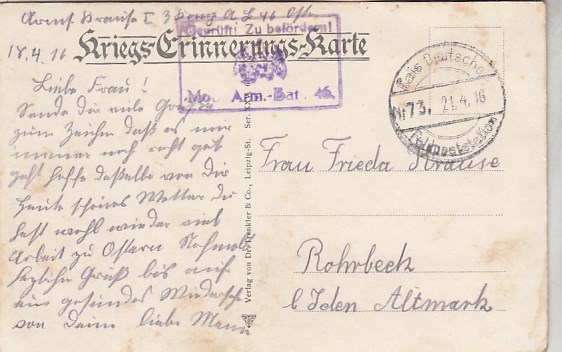 Armt Krause I 3 Komp A B 46 Osten
17.4.16
Kriegs-Erinnerungs-Karte
Geprüft! Zu befördern!
Mob. Arm.-Bat. 46.
Kais. Deutsche
Nr 73. 21.4.16
Feldpoststation
Liebe Frau!
Sende dir viele Grüße
zum Zeichen daß es mir
immer noch recht gut
geht hoffe dasselbe von dir
Heute schönes Wetter du
hast wohl wieder viel
Arbeit zu Ostern Nochmals
herzliche Grüße bis auf
ein gesundes Wiedersehn
von deim liebe Mann
Verlag von Dr. Trenkler & Co., Leipzig-St. Ser.
Frau Frieda Krause
Rohrbeck
b Iden Altmark